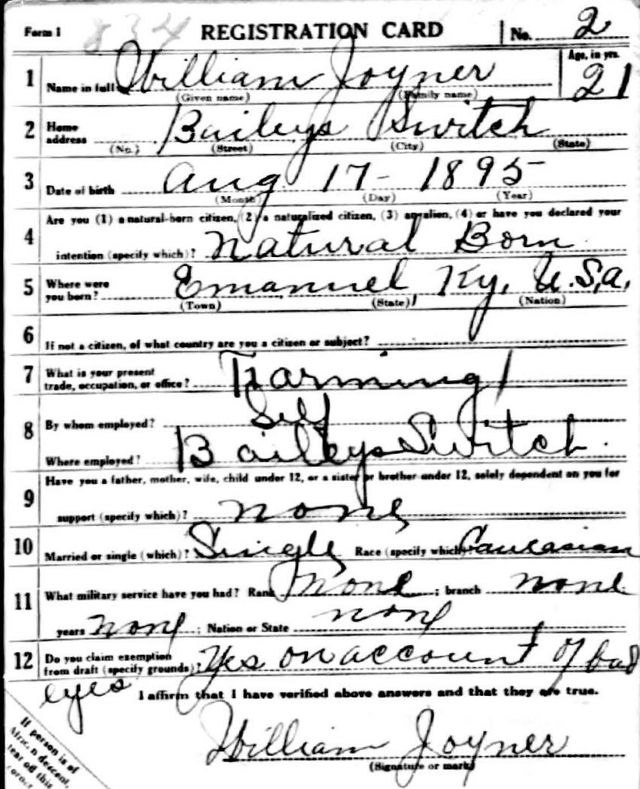 Form 1 834 REGISTRATION CARD No. 2
1 Name in full William Joyner Age, in yrs. 21
(Given name) (Family name)
2 Home address Baileys Switch
(No.) (Street) (City) (State)
3 Date of birth Aug 17 - 1895
(Month) (Day) (Year)
4 Are you (1) a natural-born citizen, (2) a naturalized citizen, (3) an alien, (4) or have you declared your
intention (specify which)? Natural Born
5 Where were you born? Emanuel Ky, U.S.A.
(Town) (State) (Nation)
6 If not a citizen, of what country are you a citizen or subject?
7 What is your present trade, occupation, or office? Farming
8 By whom employed? Self
Where employed? Baileys Switch.
9 Have you a father, mother, wife, child under 12, or a sister or brother under 12, solely dependent on you for
support (specify which)? none
10 Married or single (which)? Single Race (specify which) Caucasian
11 What military service have you had? Rank None ; branch none
years none ; Nation or State none
12 Do you claim exemption from draft (specify grounds) Yes on account of bad
eyes I affirm that I have verified above answers and that they are true.
William Joyner
(Signature or mark)
If person is of
African descent,
tear off this
corner